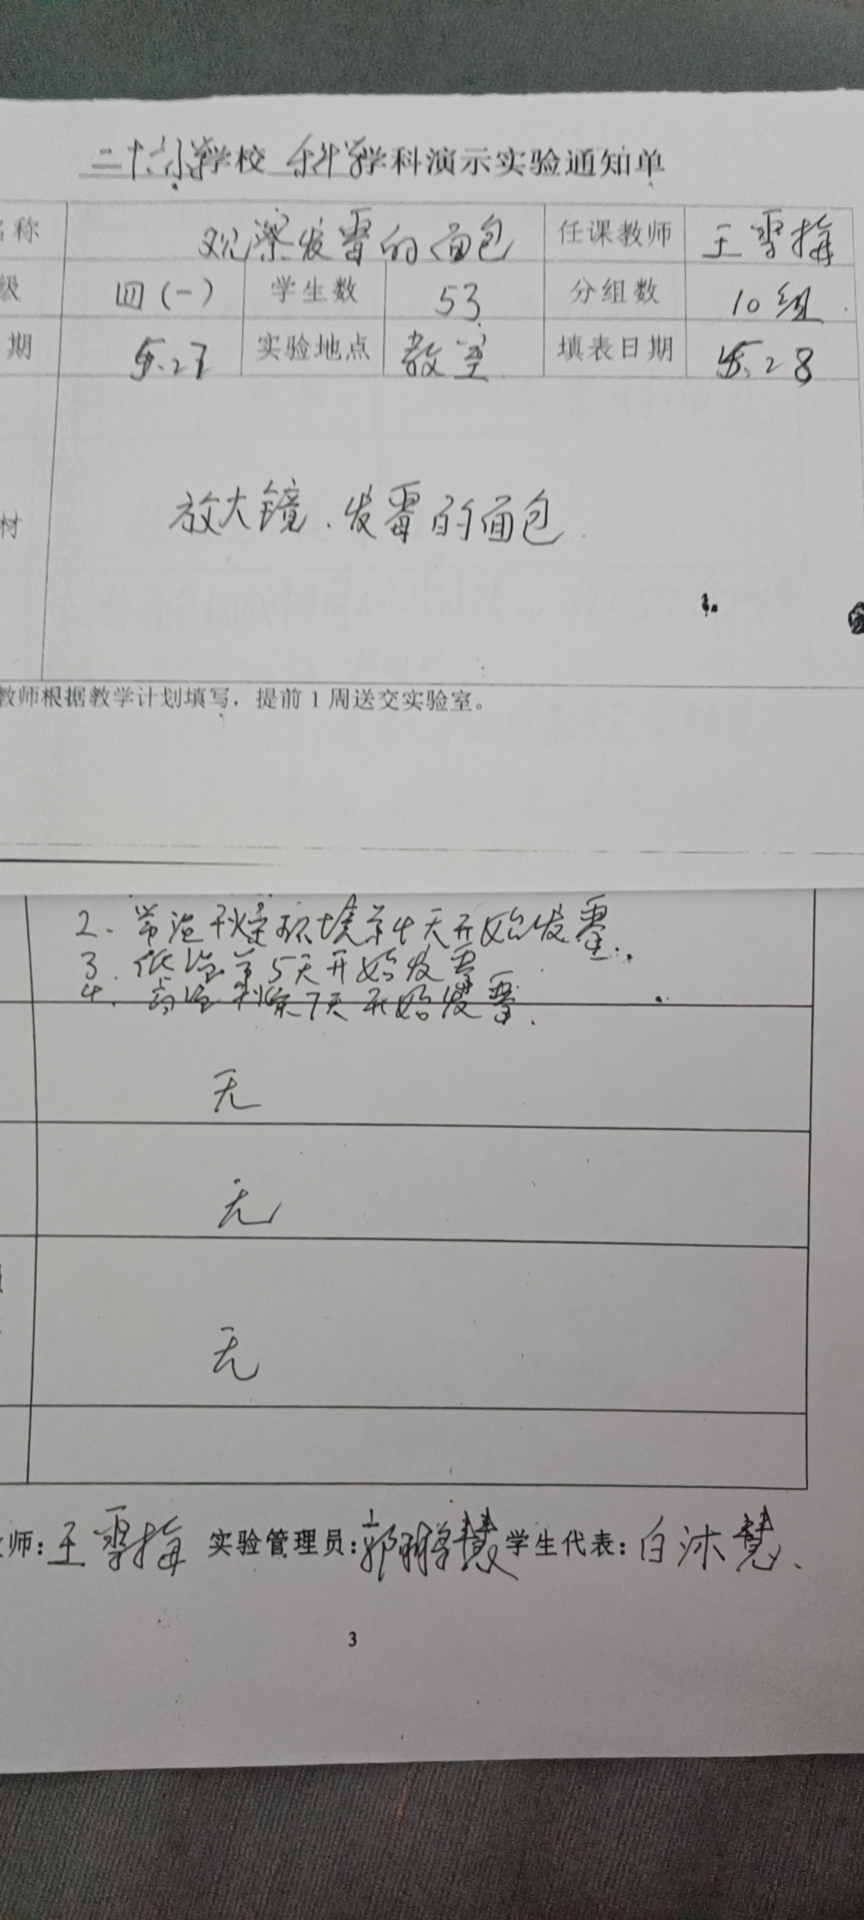 二十六小学校 科学学科演示实验通知单
名称 观察发霉的面包 任课教师 王雪梅
级 四(一) 学生数 53 分组数 10组
期 5.27 实验地点 教室 填表日期 5.28
材 放大镜、发霉的面包.
教师根据教学计划填写，提前1周送交实验室。
2. 常温干燥环境第4天开始发霉.
3. 低温第5天开始发霉
4. 高温 7天开始发霉.
无
无
无
师: 王雪梅 实验管理员: 郭 慧 学生代表: 白沐慧.
3